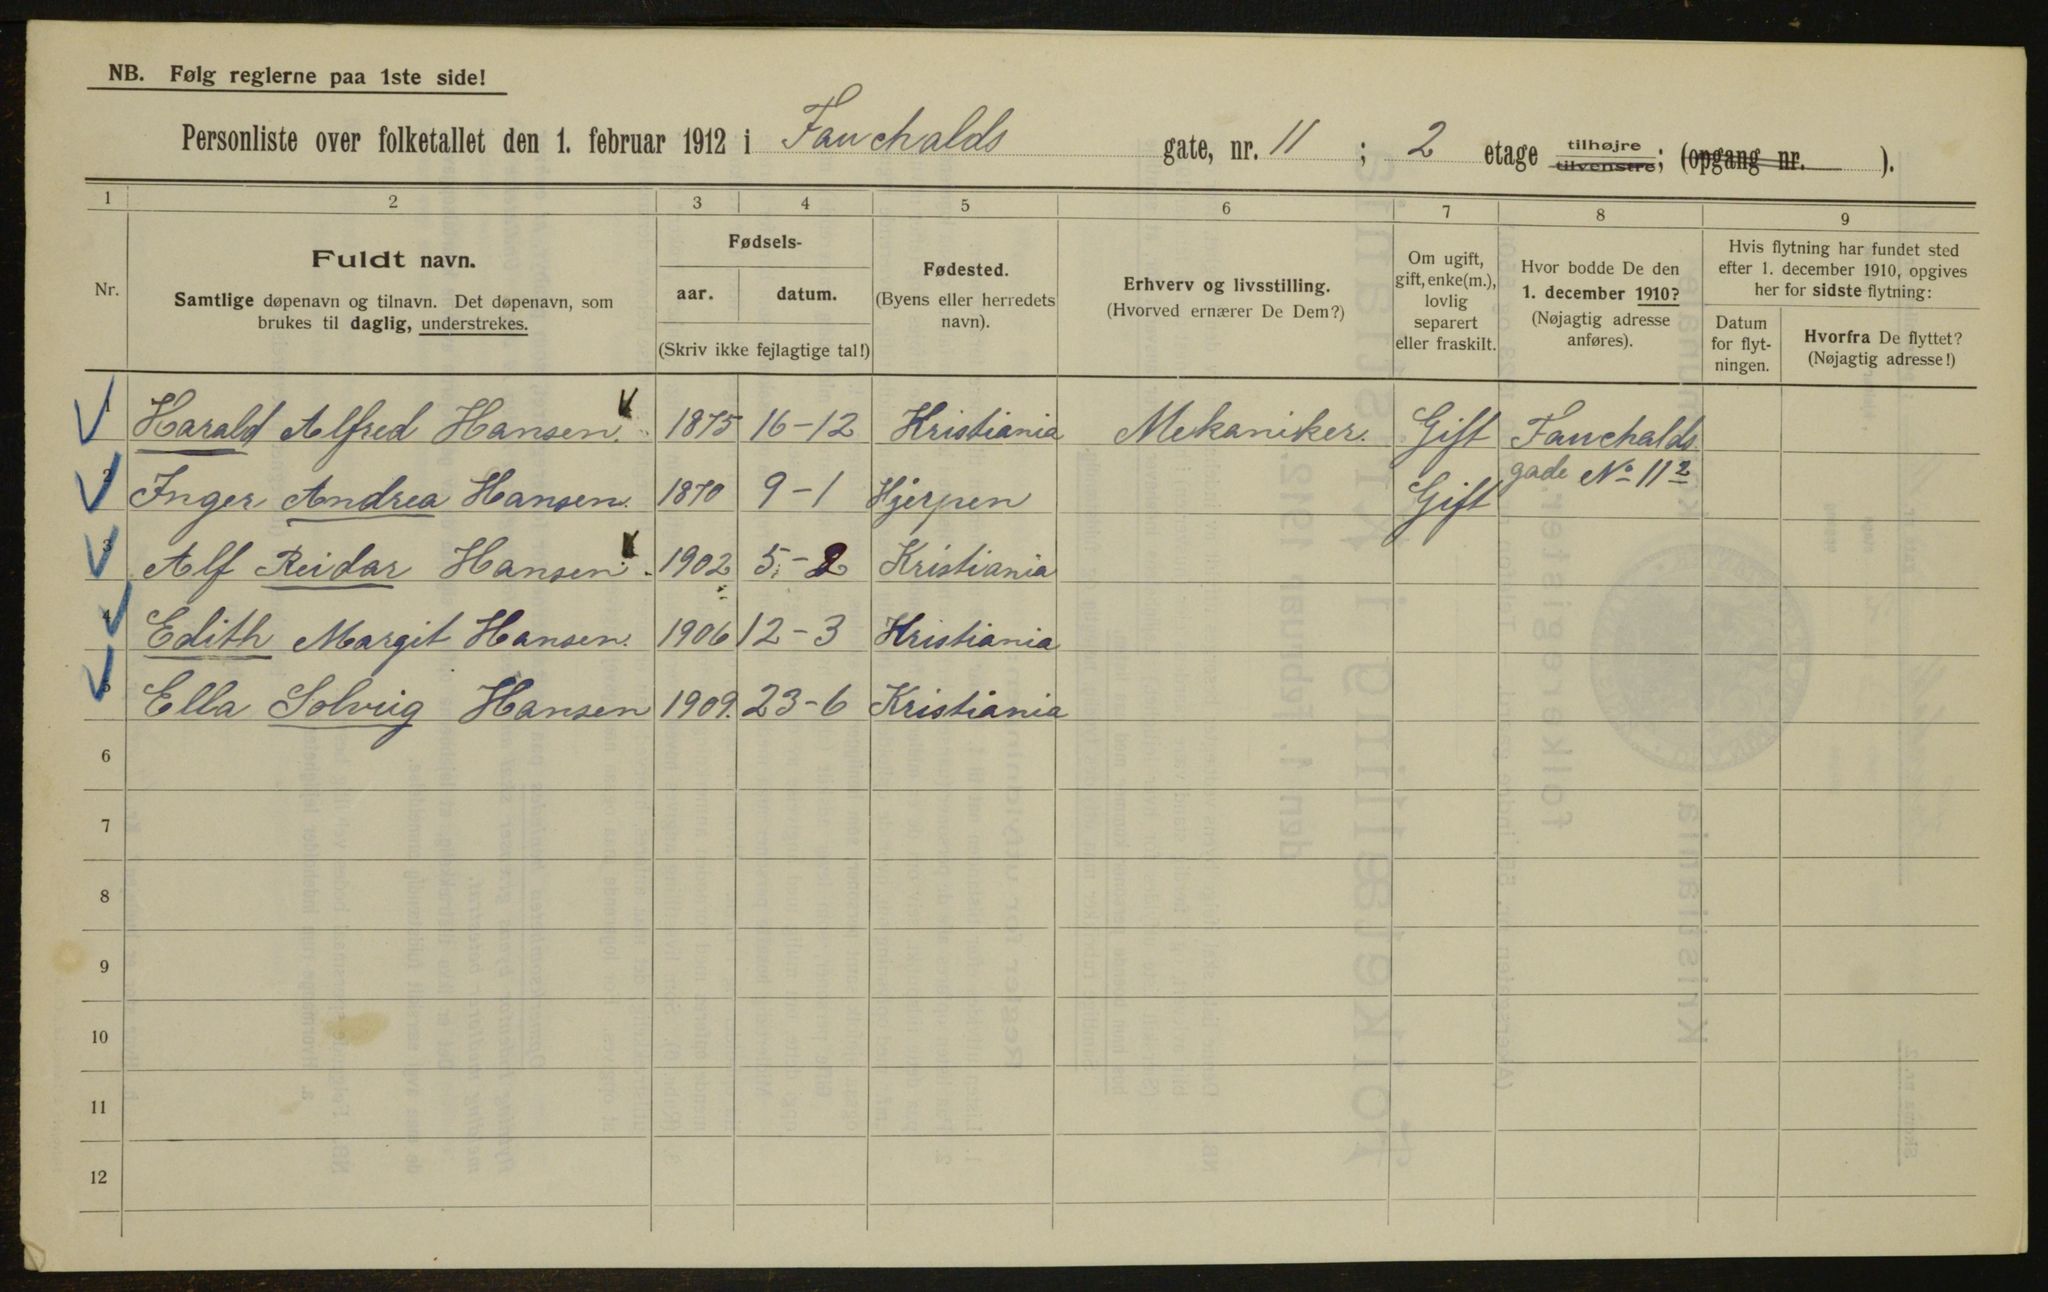 NB. Følg reglerne paa 1ste side!
Personliste over folketallet den 1. februar 1912 i Fauchalds gate, nr. 11 ; 2 etage tilhøjre tilvenstre; (opgang nr. ).
1 2 3 4 5 6 7 8 9
Nr.
Fuldt navn.
Samtlige døpenavn og tilnavn. Det døpenavn, som
brukes til daglig, understrekes.
Fødsels-
aar. datum.
(Skriv ikke fejlagtige tal!)
Fødested.
(Byens eller herredets
navn).
Erhverv og livsstilling.
(Hvorved ernærer De Dem?)
Om ugift,
gift, enke(m.),
lovlig
separert
eller fraskilt.
Hvor bodde De den
1. december 1910?
(Nøjagtig adresse
anføres).
Hvis flytning har fundet sted
efter 1. december 1910, opgives
her for sidste flytning:
Datum
for flyt-
ningen.
Hvorfra De flyttet?
(Nøjagtig adresse!)
1 Harald Alfred Hansen. 1875 16-12 Kristiania Mekaniker. Gift Fauchalds
gade No 11 2
2 Inger Andrea Hansen. 1870 9-1 Hjerpen Gift
3 Alf Reidar Hansen. 1902 5-2 Kristiania
4 Edith Margit Hansen. 1906 12-3 Kristiania
5 Ella Solveig Hansen 1909. 23-6 Kristiania
6
7
8
9
10
11
12